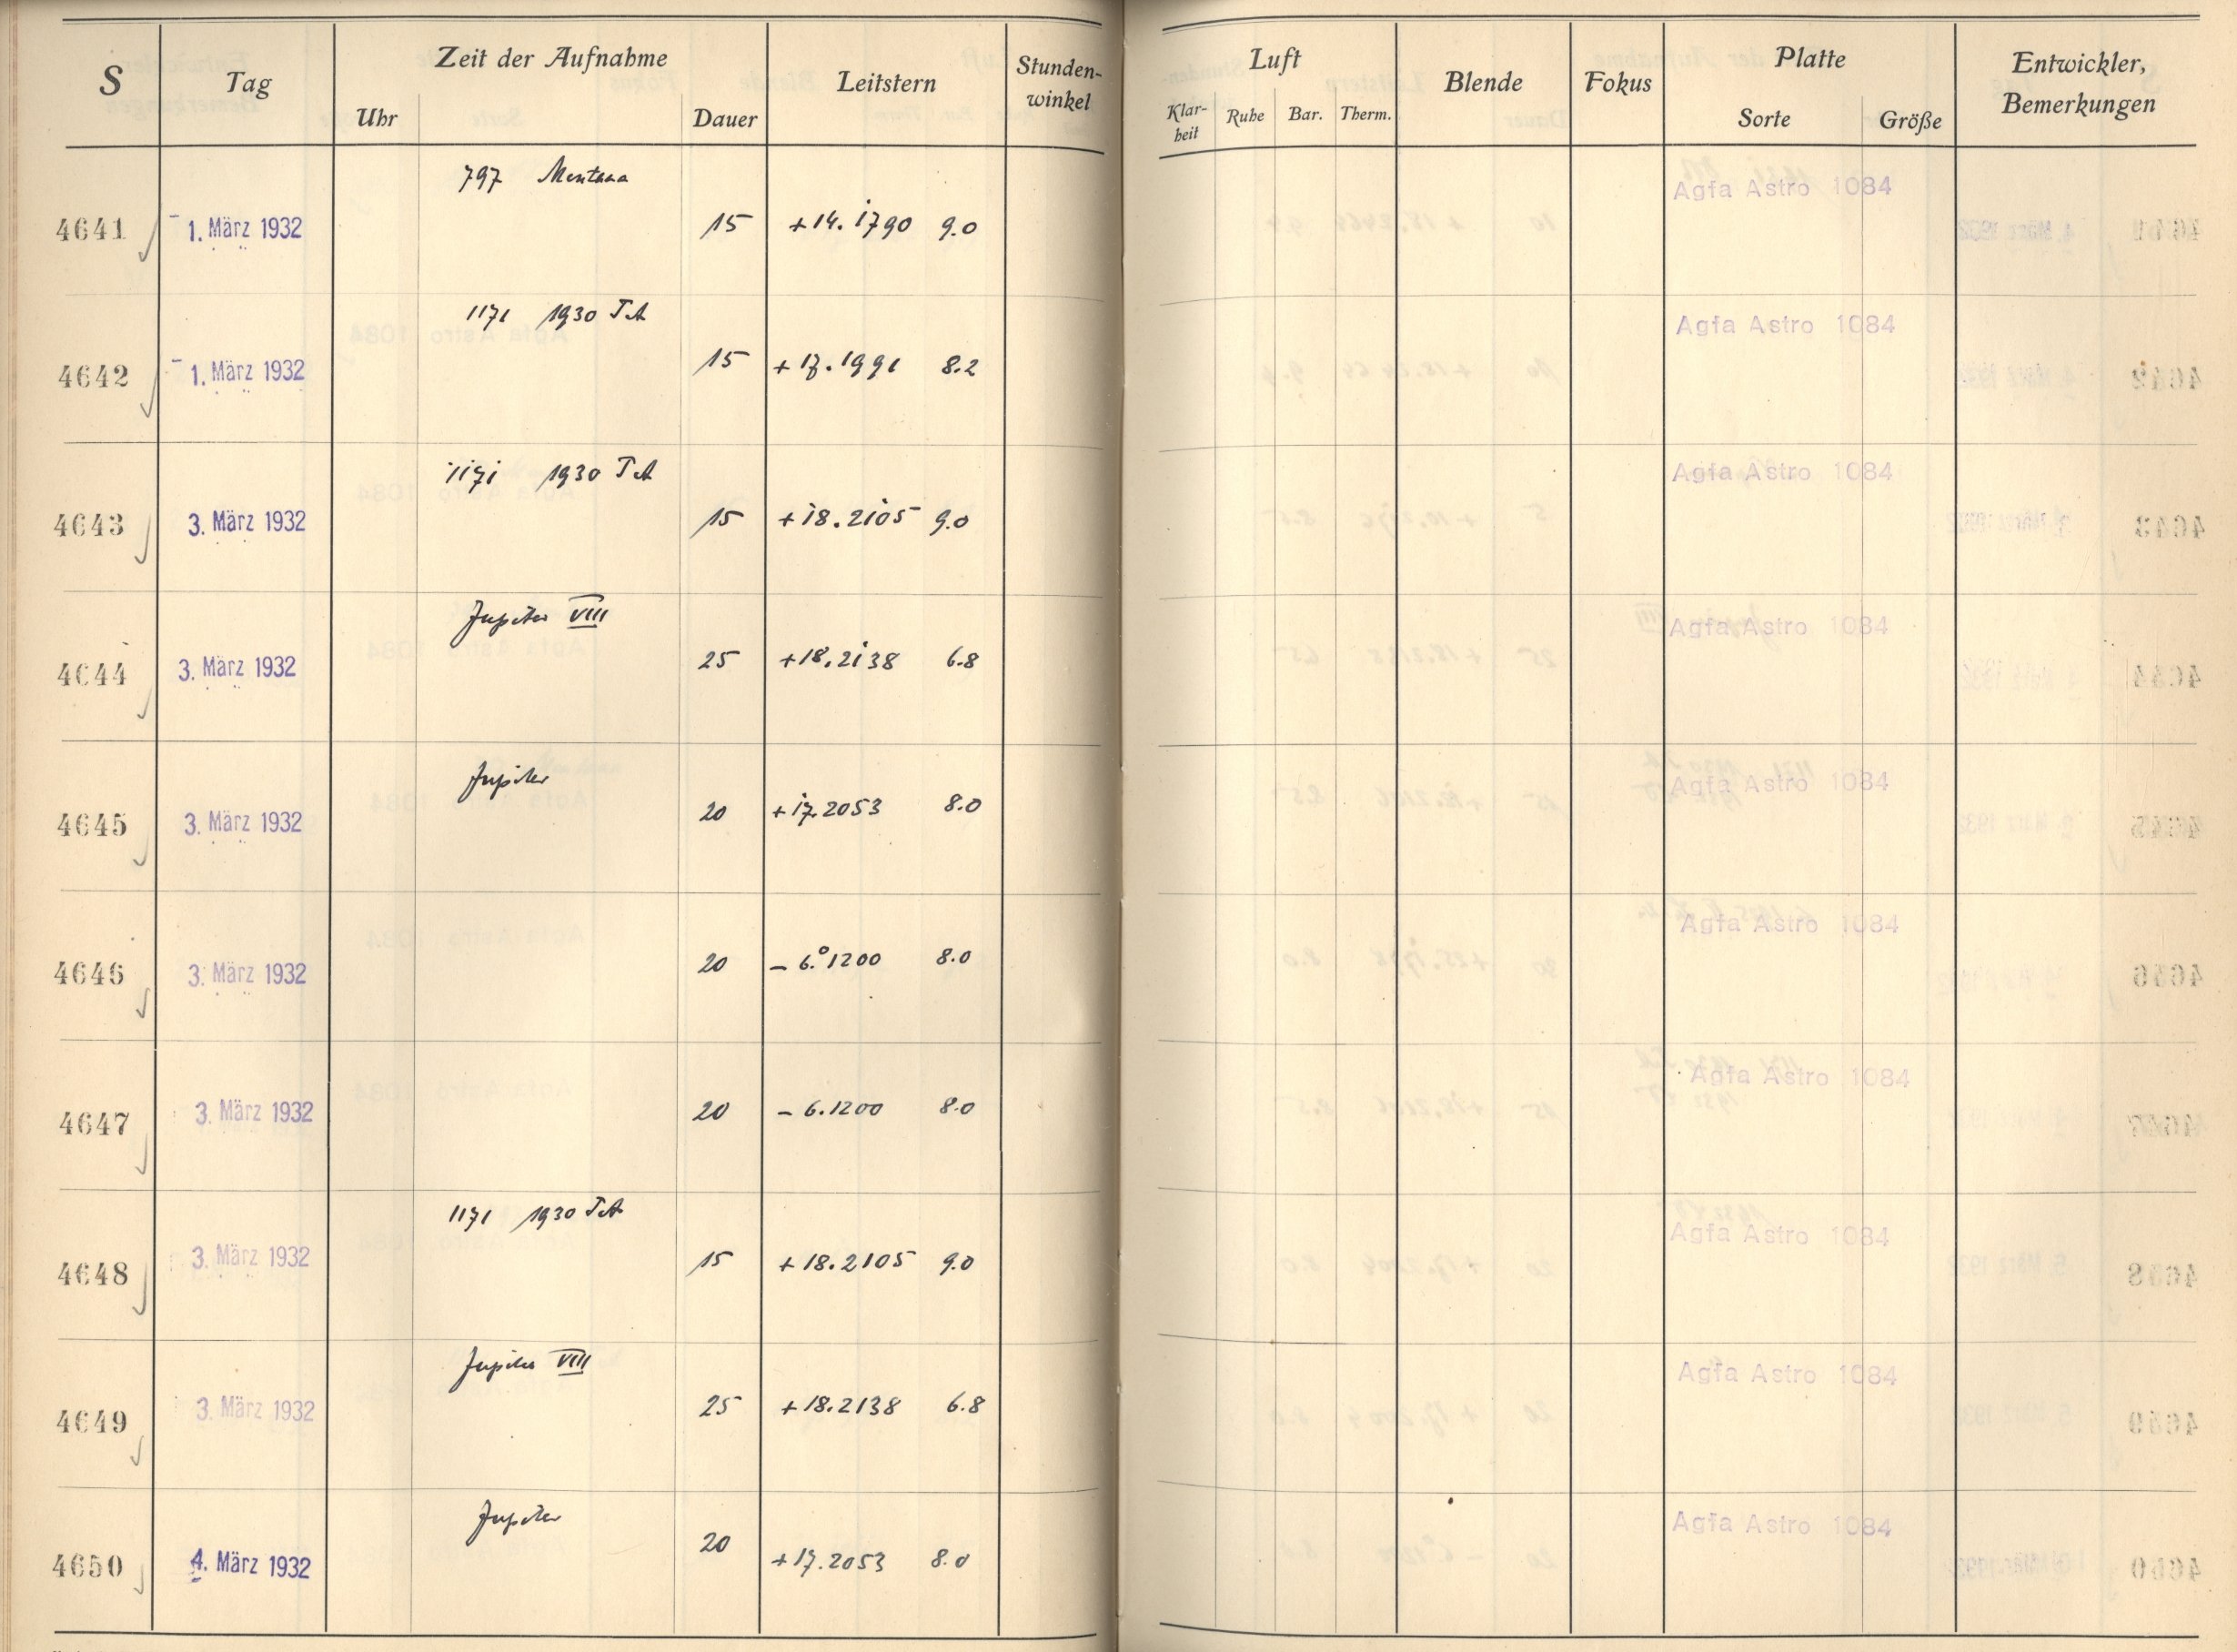 S Tag Zeit der Aufnahme Leitstern Stunden-winkel Luft Blende Fokus Platte Entwickler, Bemerkungen
Uhr Dauer Klar-heit Ruhe Bar. Therm. Sorte Größe
797 Montana Agfa Astro 1084
4641 1. März 1932 15 +14.1790 9.0
1171 1930 TA Agfa Astro 1084
4642 1. März 1932 15 +17.1991 8.2
1171 1930 TA Agfa Astro 1084
4643 3. März 1932 15 +18.2105 9.0
Jupiter VIII Agfa Astro 1084
4644 3. März 1932 25 +18.2138 6.8
Jupiter Agfa Astro 1084
4645 3. März 1932 20 +17.2053 8.0
Agfa Astro 1084
4646 3. März 1932 20 – 6.°1200 8.0
Agfa Astro 1084
4647 3. März 1932 20 – 6.1200 8.0
1171 1930 TA Agfa Astro 1084
4648 3. März 1932 15 +18.2105 9.0
Jupiter VIII Agfa Astro 1084
4649 3. März 1932 25 +18.2138 6.8
Jupiter Agfa Astro 1084
4650 4. März 1932 20 +17.2053 8.0